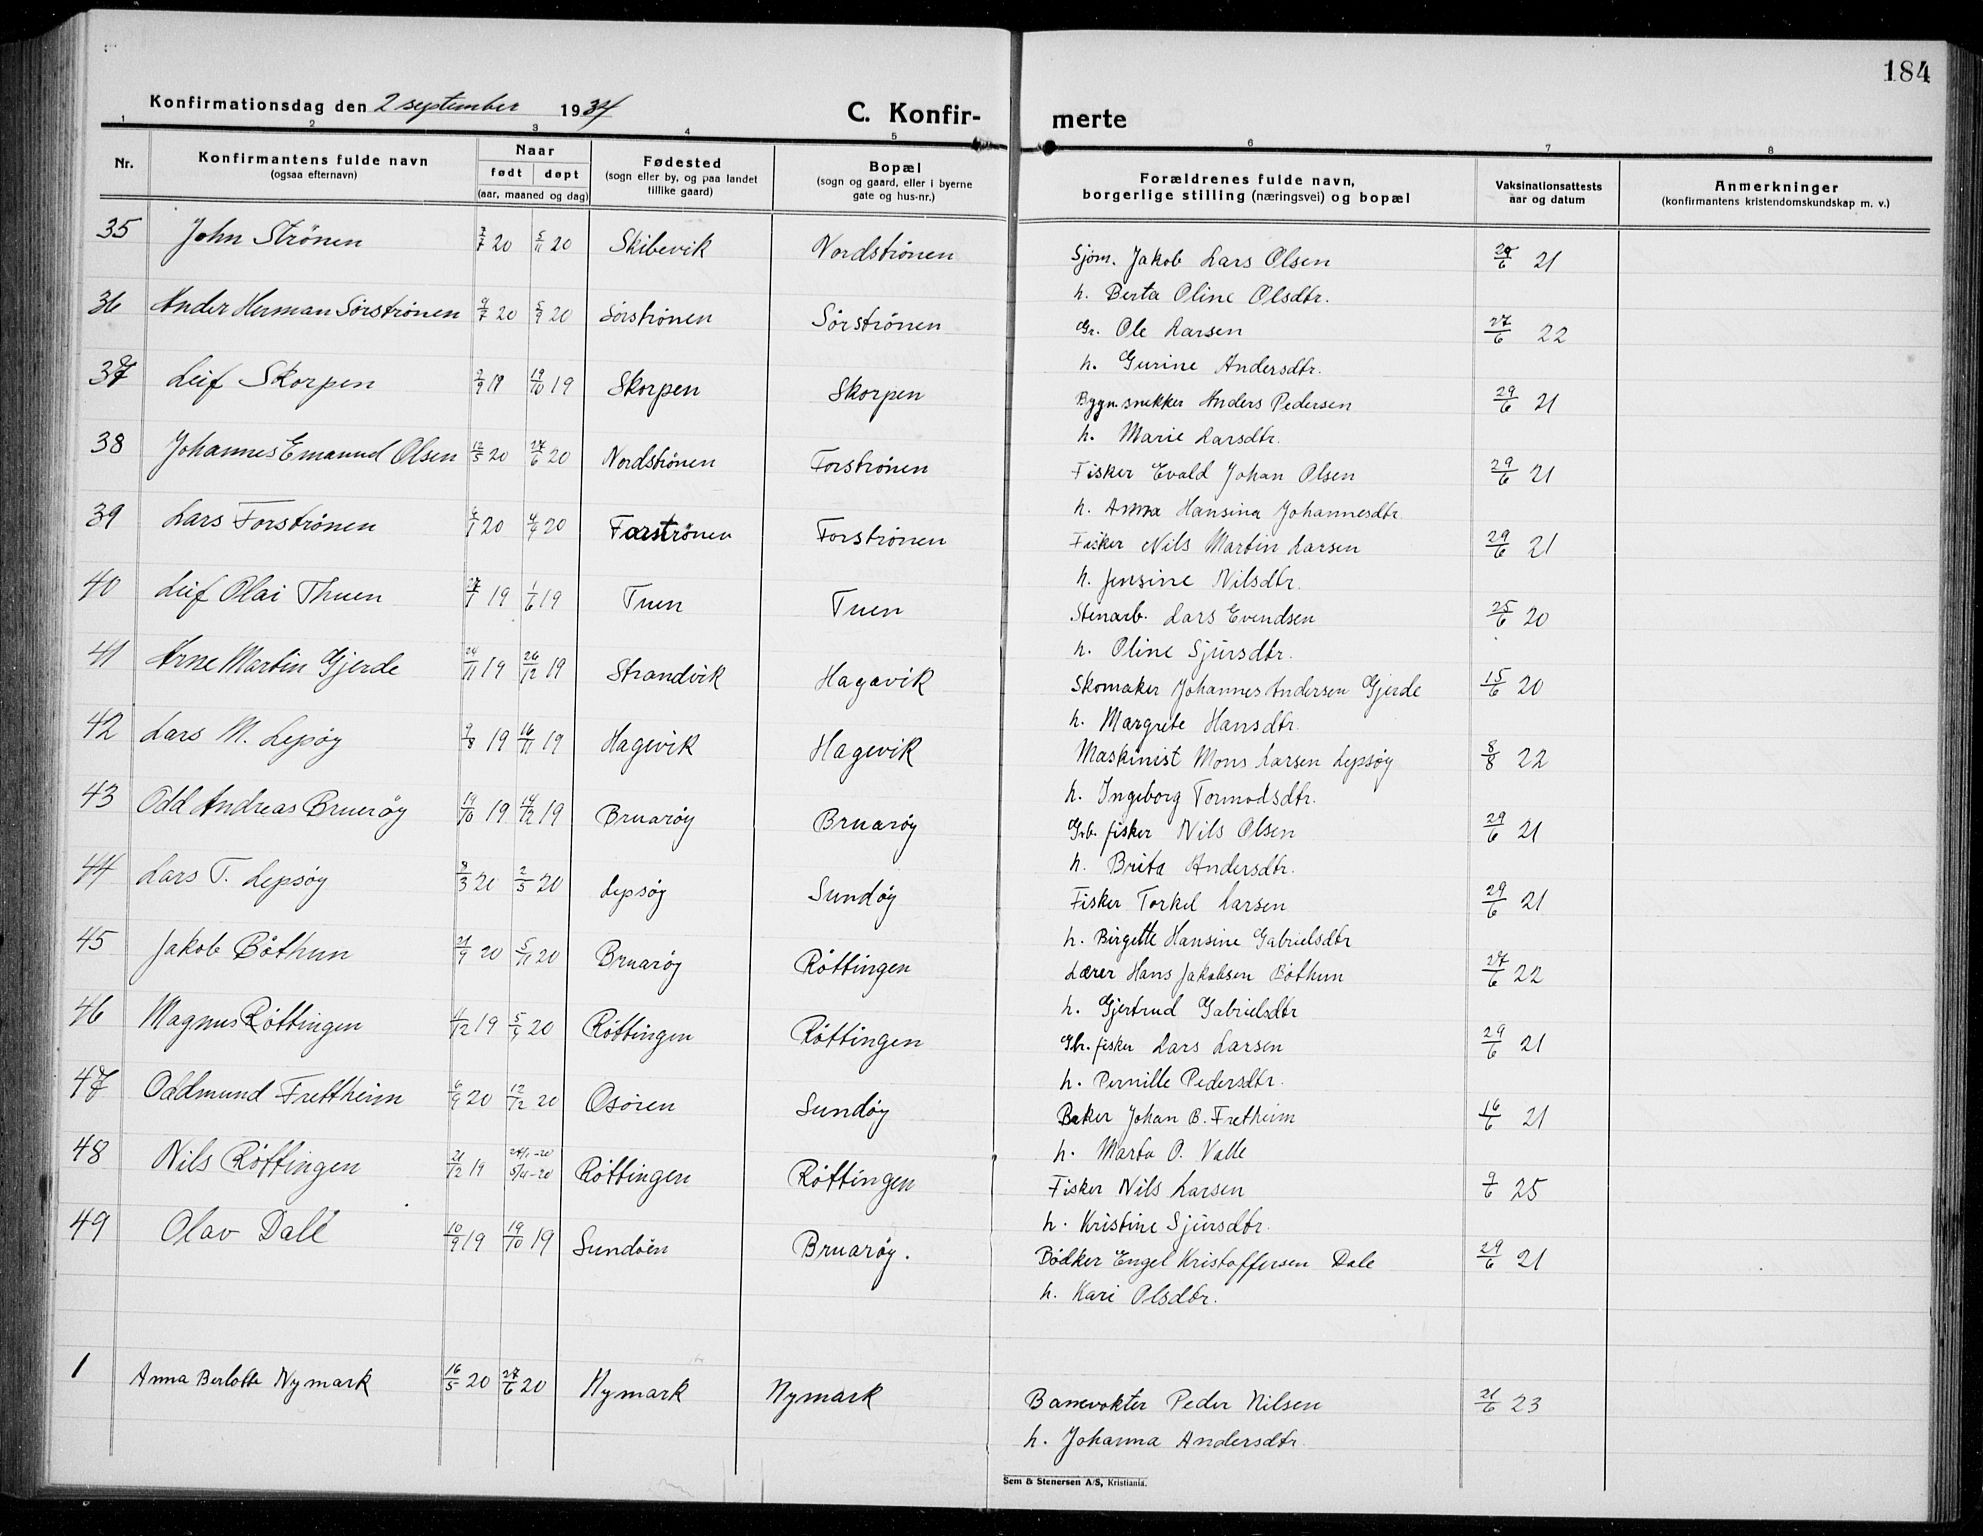 184
Konfirmationsdag den 2 september 1934
C. Konfir- merte
1 2 3 4 5 6 7 8
Nr. Konfirmantens fulde navn (ogsaa efternavn) Naar født døpt (aar, maaned og dag) Fødested (sogn eller by, og paa landet tillike gaard) Bopæl (sogn og gaard, eller i byerne gate og hus-nr.) Forældrenes fulde navn, borgerlige stilling (næringsvei) og bopæl Vaksinationsattests aar og datum Anmerkninger (konfirmantens kristendomskundskap m. v.)
35 John Strönen 7/7 20 5/11 20 Skibevik Nordströnen Sjöm. Jakob Lars Olsen 29/6 21
h. Berta Oline Olsdtr.
36 Ander Herman Sörströnen 9/7 20 5/9 20 Sörströnen Sörströnen Gr. Ole Larsen 27/6 22
h. Gurine Andersdtr.
37 Leif Skorpen 2/9 19 19/10 19 Skorpen Skorpen Bygn.snekker Anders Pedersen 29/6 21
h. Marie Larsdtr.
38 Johannes Emanuel Olsen 12/5 20 27/6 20 Nordströnen Forströnen Fisker Evald Johan Olsen 29/6 21
h. Anna Hansina Johannesdtr.
39 Lars Forströnen 20 4/4 20 Forströnen Forströnen Fisker Nils Martin Larsen 29/6 21
h. Jensine Nilsdtr.
40 Leif Olai Thuen 27/1 19 1/6 19 Tuen Tuen Stenarb. Lars Evendsen 25/6 20
h. Oline Sjursdtr.
41 Arne Martin Gjerde 24/11 19 26/12 19 Strandvik Hagavik Skomaker Johannes Andersen Gjerde 15/6 20
h. Margrete Hansdtr.
42 Lars M. Lepsöy 9/8 19 16/11 19 Hagevik Hagevik Maskinist Mons Larsen Lepsöy 8/8 22
h. Ingeborg Tormodsdtr.
43 Odd Andreas Brueröy 19/10 19 14/12 19 Bruaröy Bruaröy Grb. fisker Nils Olsen 29/6 21
h. Brita Andersdtr.
44 Lars T. Lepsöy 8/3 20 2/5 20 Lepsöy Sundöy Fisker Torkel Larsen 29/6 21
h. Birgitte Hansine Gabrielsdtr
45 Jakob Böthun 21/9 20 5/11 20 Bruaröy Röttingen Lærer Hans Jakobsen Böthun 27/6 22
h. Gjertrud Gabrielsdtr
46 Magnus Röttingen 4/12 19 5/4 20 Röttingen Röttingen Gbr. fisker Lars Larsen 29/6 21
h. Pernille Pedersdtr.
47 Oddmund Frettheim 6/9 20 12/12 20 Osören Sundöy Baker Johan B. Fretheim 16/6 21
h. Marta O. Valle
48 Nils Röttingen 21/12 19 24/1-20 Röttingen Röttingen Fisker Nils Larsen 9/6 25
5/4-20
h. Kristine Sjursdtr.
49 Olav Dale 10/9 19 19/10 19 Sundöen Bruaröy. Bödker Engel Kristoffersen Dale 29/6 21
h. Kari Olsdtr.
1 Anna Berlotte Nymark 16/5 20 27/6 20 Nymark Nymark Banevokter Peder Nilsen 21/6 23
h. Johanna Andersdtr.
Sem & Stenersen A/S, Kristiania.